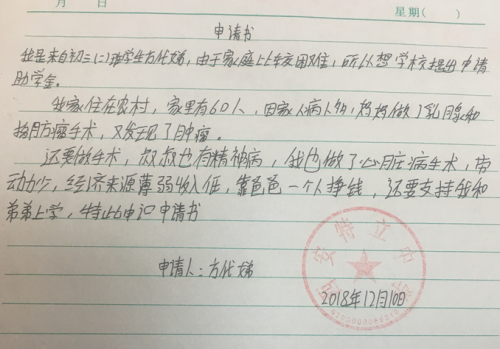 月 日 星期( )
申请书
我是来自初三(二)班学生方代娣,由于家庭比较困难,所以想学校提出申请
助学金。
我家住在农村,家里有6口人,因家人病人多,妈妈做了乳腺和
膀胱癌手术,又发现了肿瘤。
还要做手术,叔叔也有精神病,我也做了心脏病手术,带
动力少,经济来源薄弱收入低,靠爸爸一个人挣钱,还要支持我和
弟弟上学,特此申识申请书
申请人:方代娣
安特立中
2018年12月10日